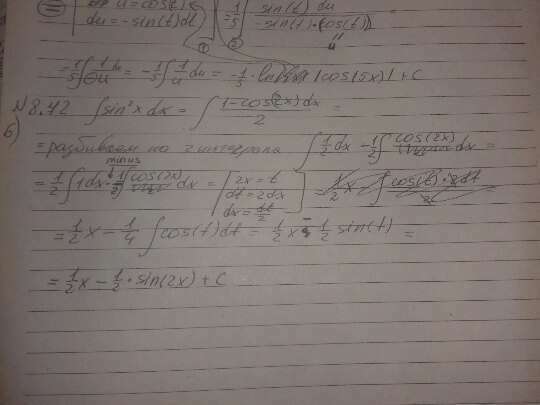 u = cos(t)
du = -sin(t)dt | -1/5 ∫ sin(t) du / -sin(t)·(cos(t))
① ② u
-1/5 ∫ 1/u du = -1/5 ∫ 1/u du = -1/5 · ln |cos(5x)| + C
№8.42 ∫sin²x dx = ∫ (1-cos(2x))dx / 2 =
б)
= разбиваем на 2 интеграла ∫ 1/2 dx - 1/2 ∫ cos(2x) dx =
minus
= 1/2 ∫ 1dx - 1/2 ∫ cos(2x) dx = | 2x = t
dt = 2dx
dx = dt/2 | = 1/2 x - ∫ cos(t) · 2dt / 2
= 1/2 x - 1/4 ∫ cos(t)dt = 1/2 x - 1/2 sin(t) =
= 1/2 x - 1/2 · sin(2x) + C